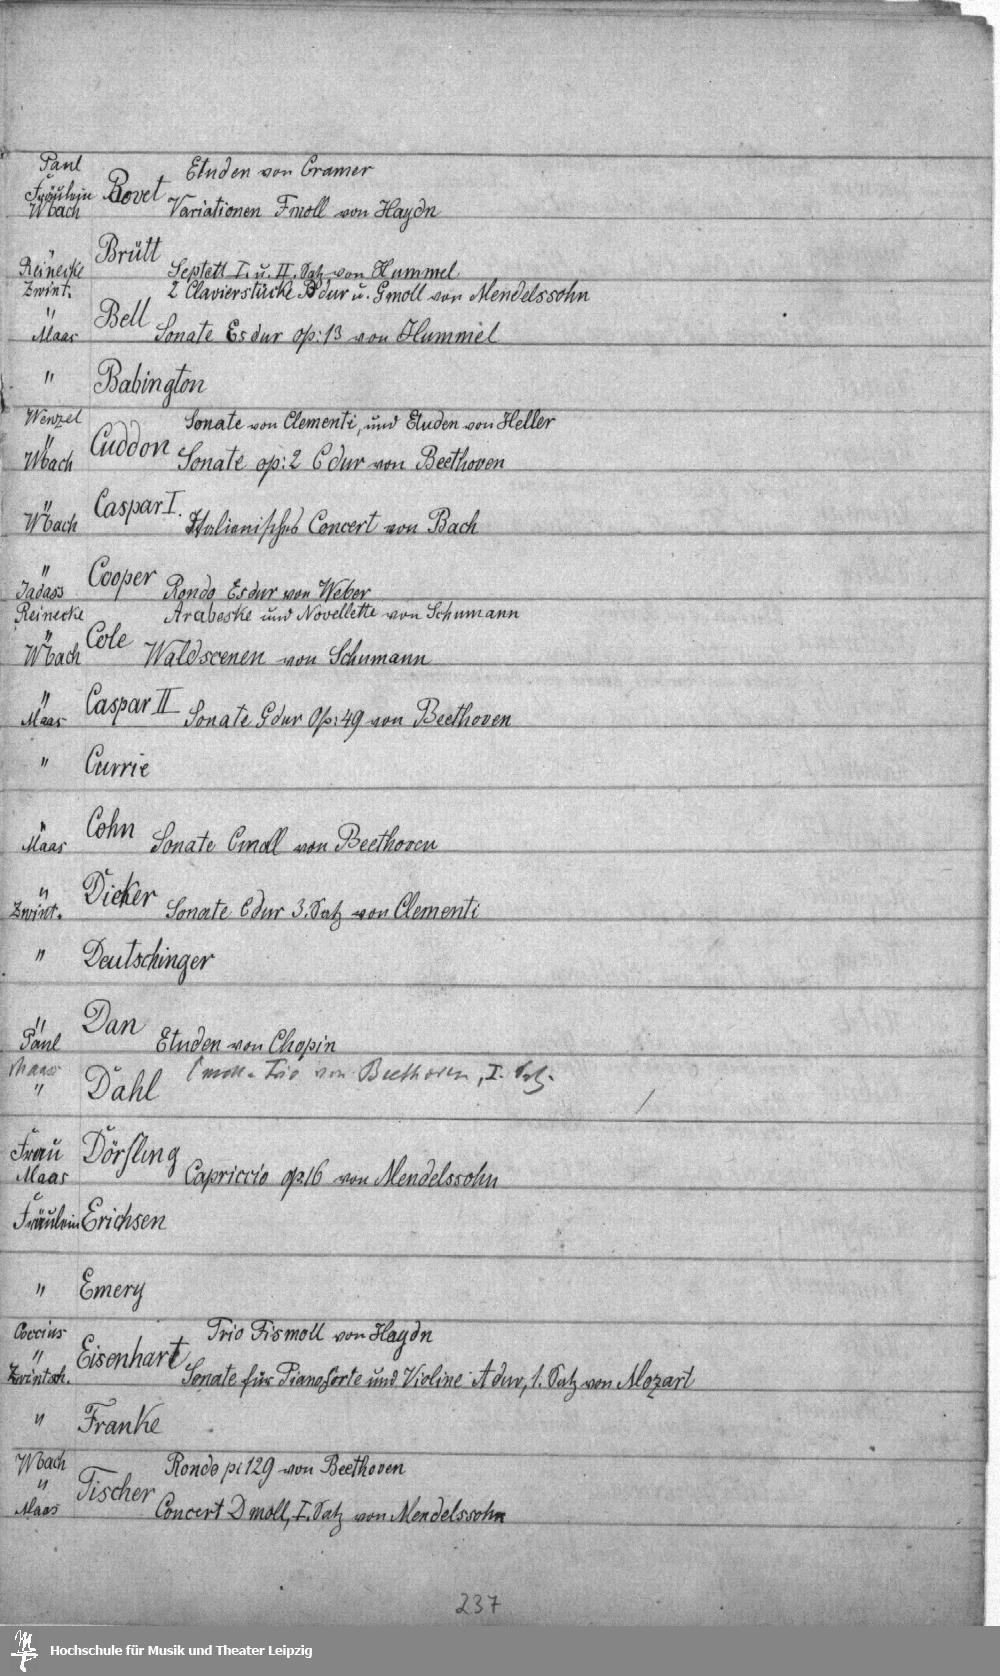 Paul Etuden von Cramer
Fräulein Bovet
Wbach Variationen Fmoll von Haydn
" Brütt
Reinecke Septett I. u. II. Satz von Hummel
Zwint. 2 Clavierstücke Bdur u. Gmoll von Mendelssohn
" Bell
Maas Sonate Esdur op: 13 von Hummel
" Babington
Wenzel Sonate von Clementi, und Etuden von Heller
" Cuddon
Wbach Sonate op: 2 Cdur von Beethoven
" Caspar I.
Wbach Italienisches Concert von Bach
" Cooper
Jadass Rondo Esdur von Weber
Reinecke Arabeske und Novellette von Schumann
" Cole
Wbach Waldscenen von Schumann
" Caspar II
Maas Sonate Gdur Op: 49 von Beethoven
" Currie
" Cohn
Maas Sonate Cmoll von Beethoven
" Dicker
Zwint. Sonate Cdur 3. Satz von Clementi
" Deutschinger
" Dan
Paul Etuden von Chopin
Maas Cmoll-Trio von Beethoven, I. Satz.
" Dahl
Frau Dörfling
Maas Capriccio op. 16 von Mendelssohn
Fräulein Erichsen
" Emery
Coccius Trio Fismoll von Haydn
" Eisenhart
Zwintsch. Sonate für Pianoforte und Violine Adur, 1. Satz von Mozart
" Franke
Wbach Rondo p: 129 von Beethoven
" Fischer
Maas Concert Dmoll, I. Satz von Mendelssohn
237
Hochschule für Musik und Theater Leipzig